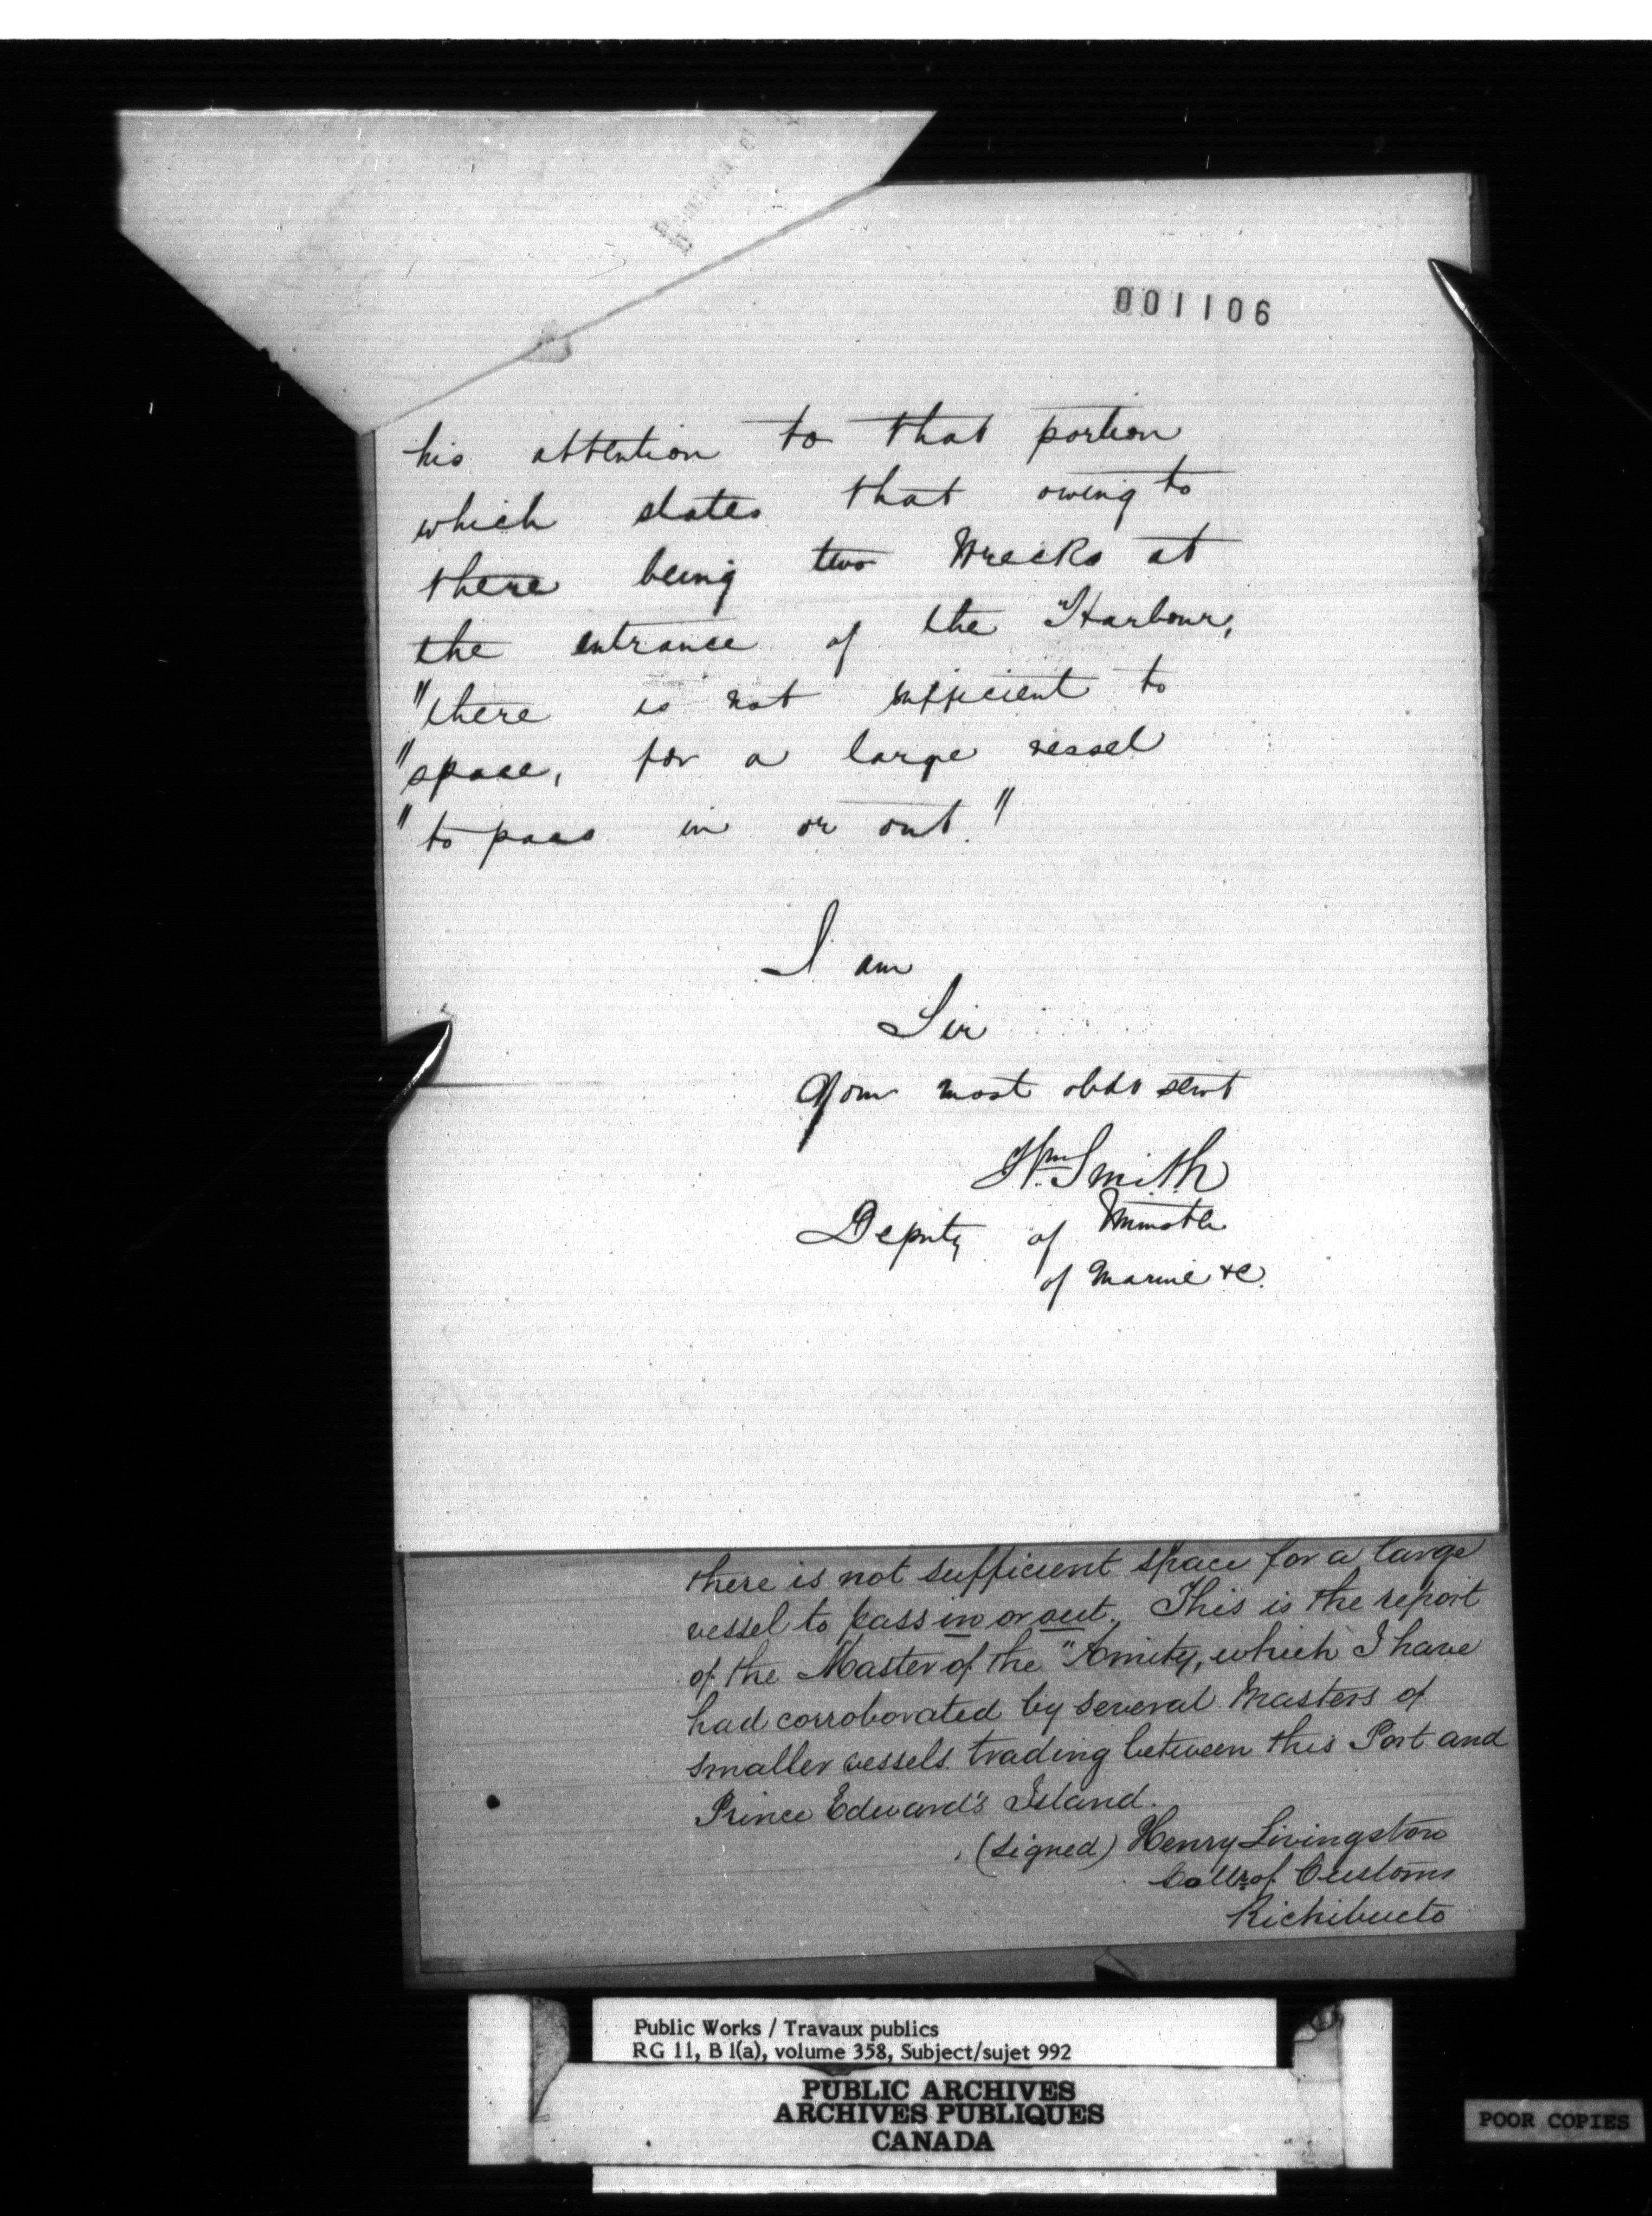 001106
his attention to that portion
which states that owing to
there being two Wrecks at
the entrance of the Harbour,
"there is not sufficient to
"space, for a large vessel
"to pass in or out."
I am
Sir
Your most obdt servt
Wm Smith
Deputy of Minister
of Marine &c.
there is not sufficient space for a large
vessel to pass in or out. This is the report
of the Master of the "Amity, which I have
had corroborated by several Masters of
smaller vessels trading between this Port and
Prince Edward's Island.
(signed) Henry Livingston
Collr of Customs
Richibucto
Public Works / Travaux publics
RG 11, B 1(a), volume 358, Subject/sujet 992
PUBLIC ARCHIVES
ARCHIVES PUBLIQUES
CANADA
POOR COPIES